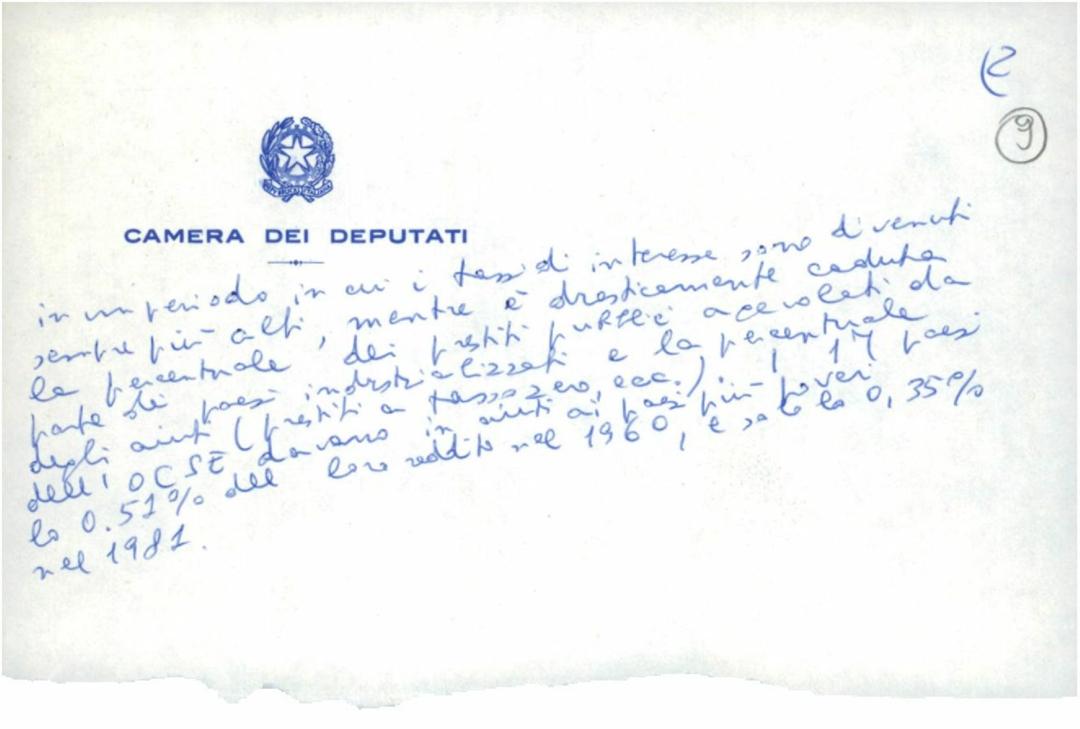 9
CAMERA DEI DEPUTATI
in un periodo in cui i tassi di interesse sono divenuti
sempre più alti, mentre è drasticamente caduta
la percentuale dei prestiti pubblici agevolati da
parte dei paesi industrializzati e la percentuale
degli aiuti (prestiti a tasso zero, ecc.). I 17 paesi
dell'OCSE davano in aiuti ai paesi più poveri
lo 0.51% del loro reddito nel 1960, e solo lo 0,35%
nel 1981.